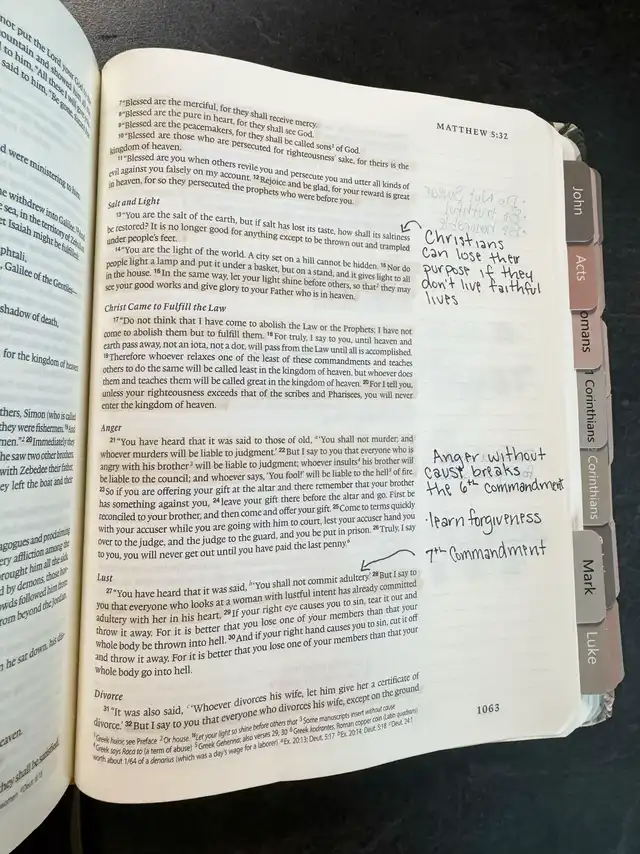 not put the Lord your God
mountain and showed
to him, "All these I will give
said to him, "Be gone,
d were ministering to him.
he withdrew into Galilee.
e sea, in the territory of
et Isaiah might be fulfilled
phtali,
, Galilee of the Gentiles—
shadow of death,
for the kingdom of heaven
thers, Simon (who is called
they were fishermen.
men." 20 Immediately they
he saw two other brothers,
with Zebedee their father,
ey left the boat and their
agogues and proclaiming
ery affliction among the
rought him all the sick,
d by demons, those
owds followed him from
rom beyond the Jordan.
n he sat down, his
eaven.
they shall be satisfied.
MATTHEW 5:32
7 "Blessed are the merciful, for they shall receive mercy.
8 "Blessed are the pure in heart, for they shall see God.
9 "Blessed are the peacemakers, for they shall be called sons¹ of God.
10 "Blessed are those who are persecuted for righteousness' sake, for theirs is the
kingdom of heaven.
11 "Blessed are you when others revile you and persecute you and utter all kinds of
evil against you falsely on my account. 12 Rejoice and be glad, for your reward is great
in heaven, for so they persecuted the prophets who were before you.
Salt and Light
13 "You are the salt of the earth, but if salt has lost its taste, how shall its saltiness
be restored? It is no longer good for anything except to be thrown out and trampled
under people's feet.
14 "You are the light of the world. A city set on a hill cannot be hidden. 15 Nor do
people light a lamp and put it under a basket, but on a stand, and it gives light to all
in the house. 16 In the same way, let your light shine before others, so that² they may
see your good works and give glory to your Father who is in heaven.
Christ Came to Fulfill the Law
17 "Do not think that I have come to abolish the Law or the Prophets; I have not
come to abolish them but to fulfill them. 18 For truly, I say to you, until heaven and
earth pass away, not an iota, not a dot, will pass from the Law until all is accomplished.
19 Therefore whoever relaxes one of the least of these commandments and teaches
others to do the same will be called least in the kingdom of heaven, but whoever does
them and teaches them will be called great in the kingdom of heaven. 20 For I tell you,
unless your righteousness exceeds that of the scribes and Pharisees, you will never
enter the kingdom of heaven.
Anger
21 "You have heard that it was said to those of old, ᵃ'You shall not murder; and
whoever murders will be liable to judgment.' 22 But I say to you that everyone who is
angry with his brother³ will be liable to judgment; whoever insults⁴ his brother will
be liable to the council; and whoever says, 'You fool!' will be liable to the hell⁵ of fire.
23 So if you are offering your gift at the altar and there remember that your brother
has something against you, 24 leave your gift there before the altar and go. First be
reconciled to your brother, and then come and offer your gift. 25 Come to terms quickly
with your accuser while you are going with him to court, lest your accuser hand you
over to the judge, and the judge to the guard, and you be put in prison. 26 Truly, I say
to you, you will never get out until you have paid the last penny.⁶
Lust
27 "You have heard that it was said, ᵇ'You shall not commit adultery.' 28 But I say to
you that everyone who looks at a woman with lustful intent has already committed
adultery with her in his heart. 29 If your right eye causes you to sin, tear it out and
throw it away. For it is better that you lose one of your members than that your
whole body be thrown into hell. 30 And if your right hand causes you to sin, cut it off
and throw it away. For it is better that you lose one of your members than that your
whole body go into hell.
Divorce
31 "It was also said, ᶜ'Whoever divorces his wife, let him give her a certificate of
divorce.' 32 But I say to you that everyone who divorces his wife, except on the ground
1 Greek huioi; see Preface 2 Or house. 16 Let your light so shine before others that 3 Some manuscripts insert without cause
4 Greek says Raca to (a term of abuse) 5 Greek Gehenna; also verses 29, 30 6 Greek kodrantes, Roman copper coin (Latin quadrans)
worth about 1/64 of a denarius (which was a day's wage for a laborer) ᵃ Ex. 20:13; Deut. 5:17 ᵇ Ex. 20:14; Deut. 5:18 ᶜ Deut. 24:1
1063
Christians
can lose their
purpose if they
don't live faithful
lives
Anger without
cause breaks
the 6th commandment
·learn forgiveness
7th Commandment
John
Acts
omans
1 Corinthians
Corinthians
Mark
Luke